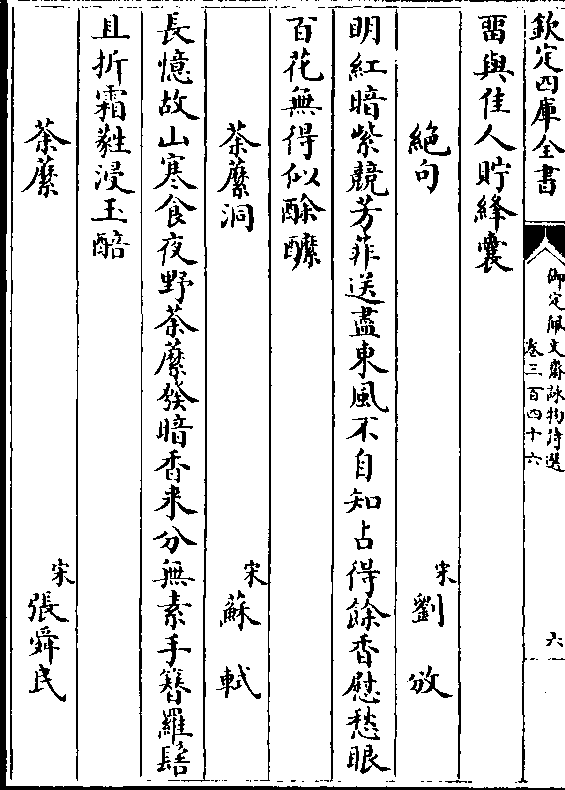 欽定四庫全書
御定佩文齋詠物詩選
卷三百四十六
六
畱與佳人貯絳囊
絶句
宋劉攽
明紅暗紫競芳菲送盡東風不自知占得餘香慰愁眼
百花無得似酴醿
荼䕷洞
宋蘇軾
長憶故山寒食夜野荼䕷發暗香来分無素手簪羅髻
且折霜蕤浸玉醅
荼䕷
宋張舜民